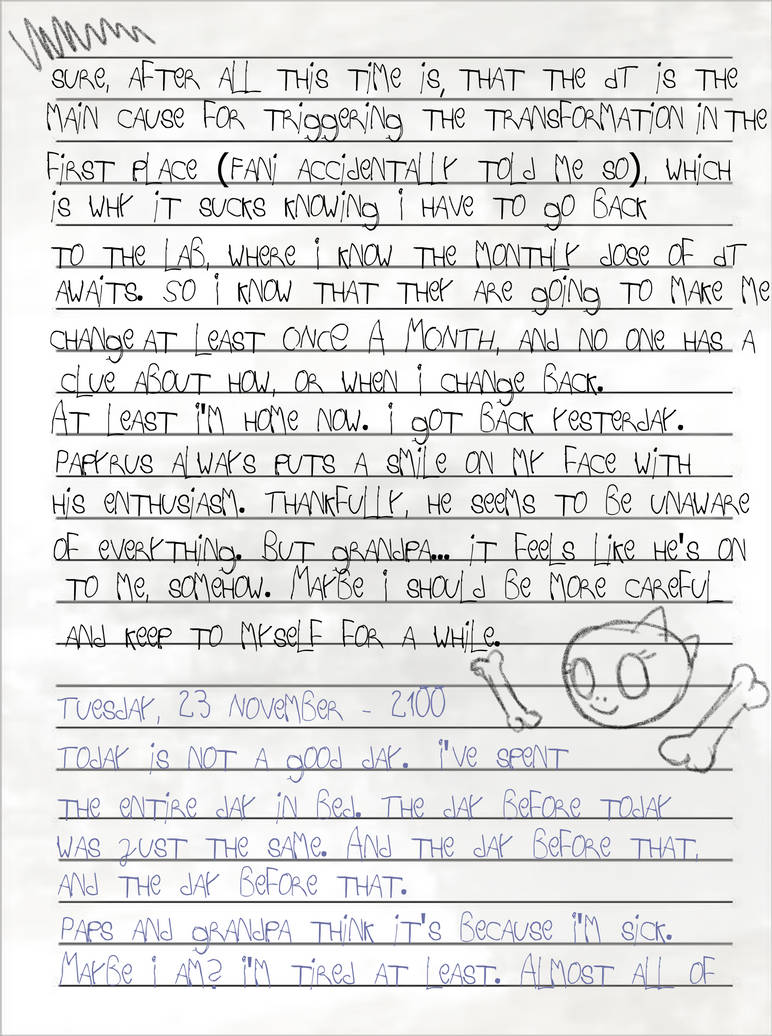 SURE, AFTER ALL THIS TIME IS, THAT THE dT IS THE
MAIN CAUSE FOR TRIGGERING THE TRANSFORMATION IN THE
FIRST PLACE (FANI ACCIDENTALLY TOLD ME SO), WHICH
IS WHY IT SUCKS KNOWING I HAVE TO GO BACK
TO THE LAB, WHERE I KNOW THE MONTHLY DOSE OF dT
AWAITS. SO I KNOW THAT THEY ARE GOING TO MAKE ME
CHANGE AT LEAST ONCE A MONTH, AND NO ONE HAS A
CLUE ABOUT HOW, OR WHEN I CHANGE BACK.
AT LEAST I'M HOME NOW. I GOT BACK YESTERDAY.
PAPYRUS ALWAYS PUTS A SMILE ON MY FACE WITH
HIS ENTHUSIASM. THANKFULLY, HE SEEMS TO BE UNAWARE
OF EVERYTHING. BUT GRANDPA... IT FEELS LIKE HE'S ON
TO ME, SOMEHOW. MAYBE I SHOULD BE MORE CAREFUL
AND KEEP TO MYSELF FOR A WHILE.
TUESDAY, 23 NOVEMBER - 2100
TODAY IS NOT A GOOD DAY. I'VE SPENT
THE ENTIRE DAY IN BED. THE DAY BEFORE TODAY
WAS JUST THE SAME. AND THE DAY BEFORE THAT,
AND THE DAY BEFORE THAT.
PAPS AND GRANDPA THINK IT'S BECAUSE I'M SICK.
MAYBE I AM? I'M TIRED AT LEAST. ALMOST ALL OF